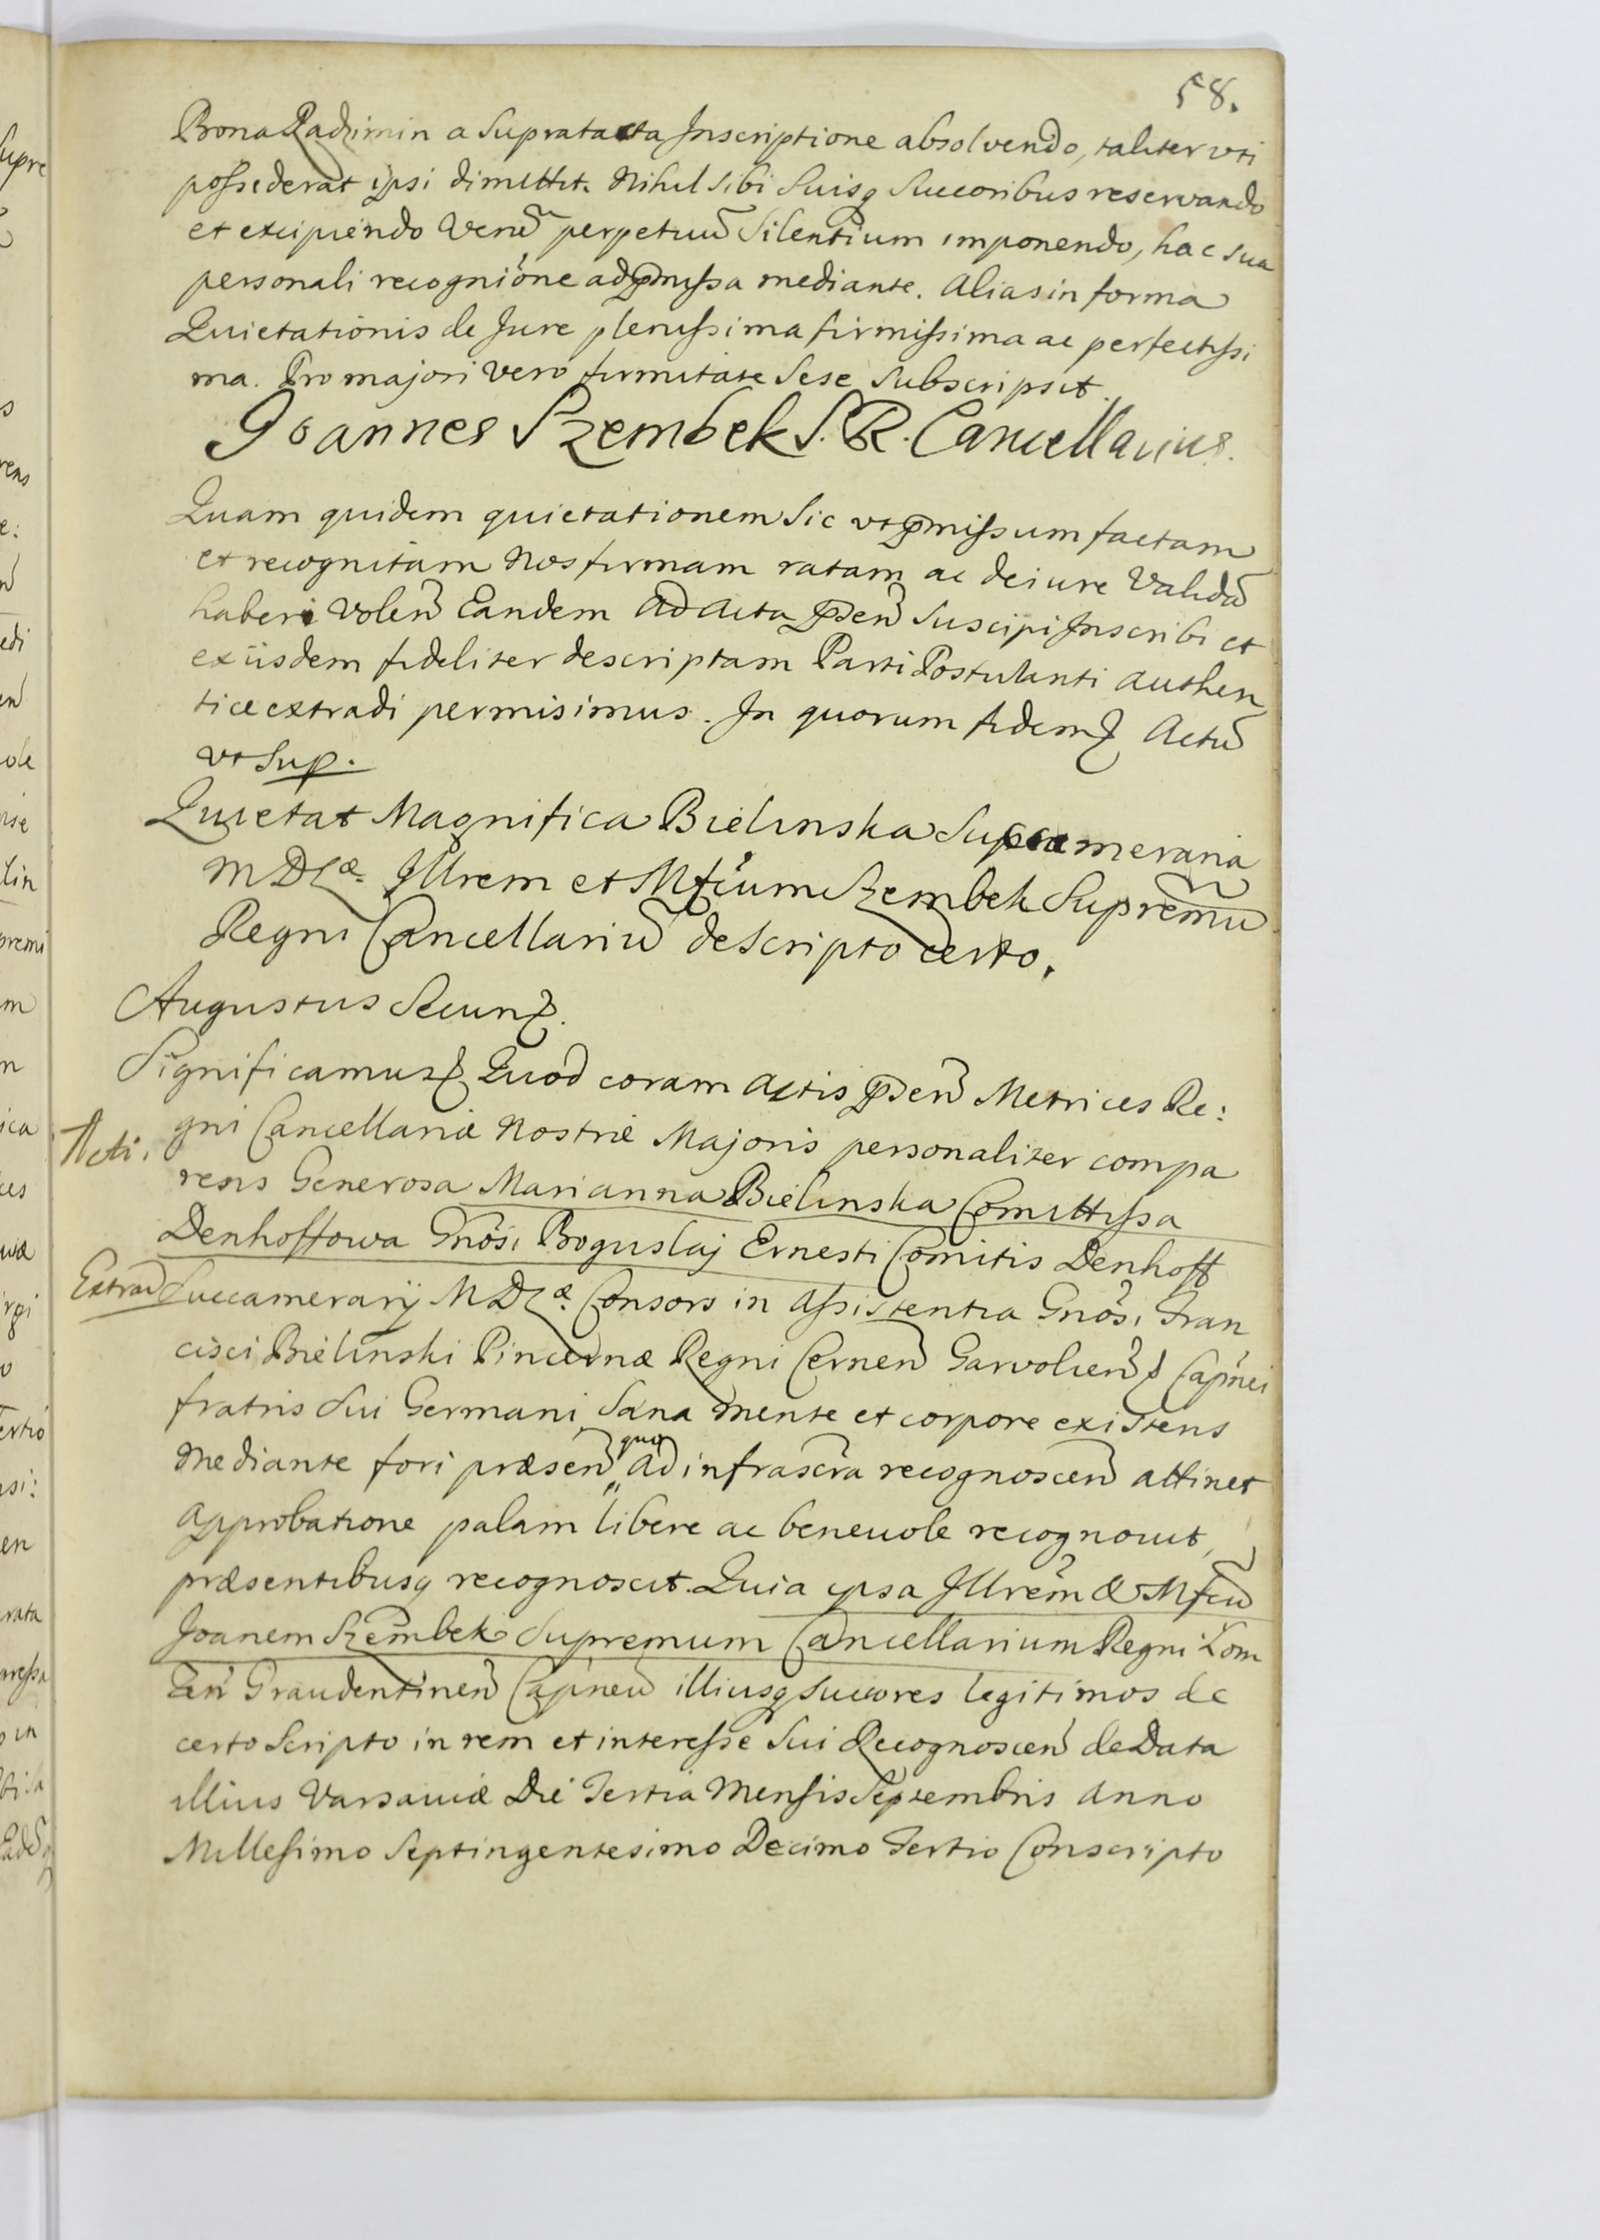 58.
Bona Radzimin a Supratacta Inscriptione absolvendo, taliter uti
possiderat ipsi dimittit. Nihil Sibi Suisq Succoribus reservando
et excipiendo Verũ perpetuũ Silentium imponendo, hac sua
personali recogniõne ad præmissa mediante. Alias in forma
Quietationis de Jure plenissima firmissima ac perfectissi
ma. Pro majori vero firmitate Sese Subscripsit.
Joannes Szembek S. R. Cancellarius.
Quam quidem quietationem Sic ut præmissum factam
et recognitam Nos firmam ratam ac de iure Validã
haberi Volen̄ Eandem Ad Acta præsen̄ Suscipi Inscribi et
ex iisdem fideliter descriptam Parti Postulanti authen
tice extradi permisimus. In quorum fidem & Actũ
ut Sup.
Quietat Magnifica Bielinska Succameraria
M D L æ. Illrem et Mfcum Szembek Supremũ
Regni Cancellariũ de Scripto certo.
Augustus Secun&.
Significamus & Quod coram Actis præsen̄ Metrices Re:
gni Cancellariæ Nostræ Majoris personaliter compa
Acti.
rens Generosa Marianna Bielinska Comittissa
Denhoffowa Gnõsi Boguslaj Ernesti Comitis Denhoff
Extrad
Succamerarij M D L æ. Consors in Assistentia Gnõsi Fran
cisci Bielinski Pincernæ Regni Cernen̄ Garvolien̄ & Capnei
fratris Sui Germani Sana mente et corpore existens
Mediante fori præsen̄ quo ad infrascra recognoscen̄ attinet
Approbatione palam libere ac benevole recognovit,
præsentibusq recognoscit. Quia ipsa Illrem & Mfcũ
Joanem Szembek Supremum Cancellarium Regni Lom
zen̄ Graudentinen̄ Capneũ illiusq Succores legitimos de
certo Scripto in rem et interesse Sui Recognoscen̄ de Data
illius Varsaviæ Die Tertia Mensis Septembris Anno
Millesimo Septingentesimo Decimo Tertio Conscripto